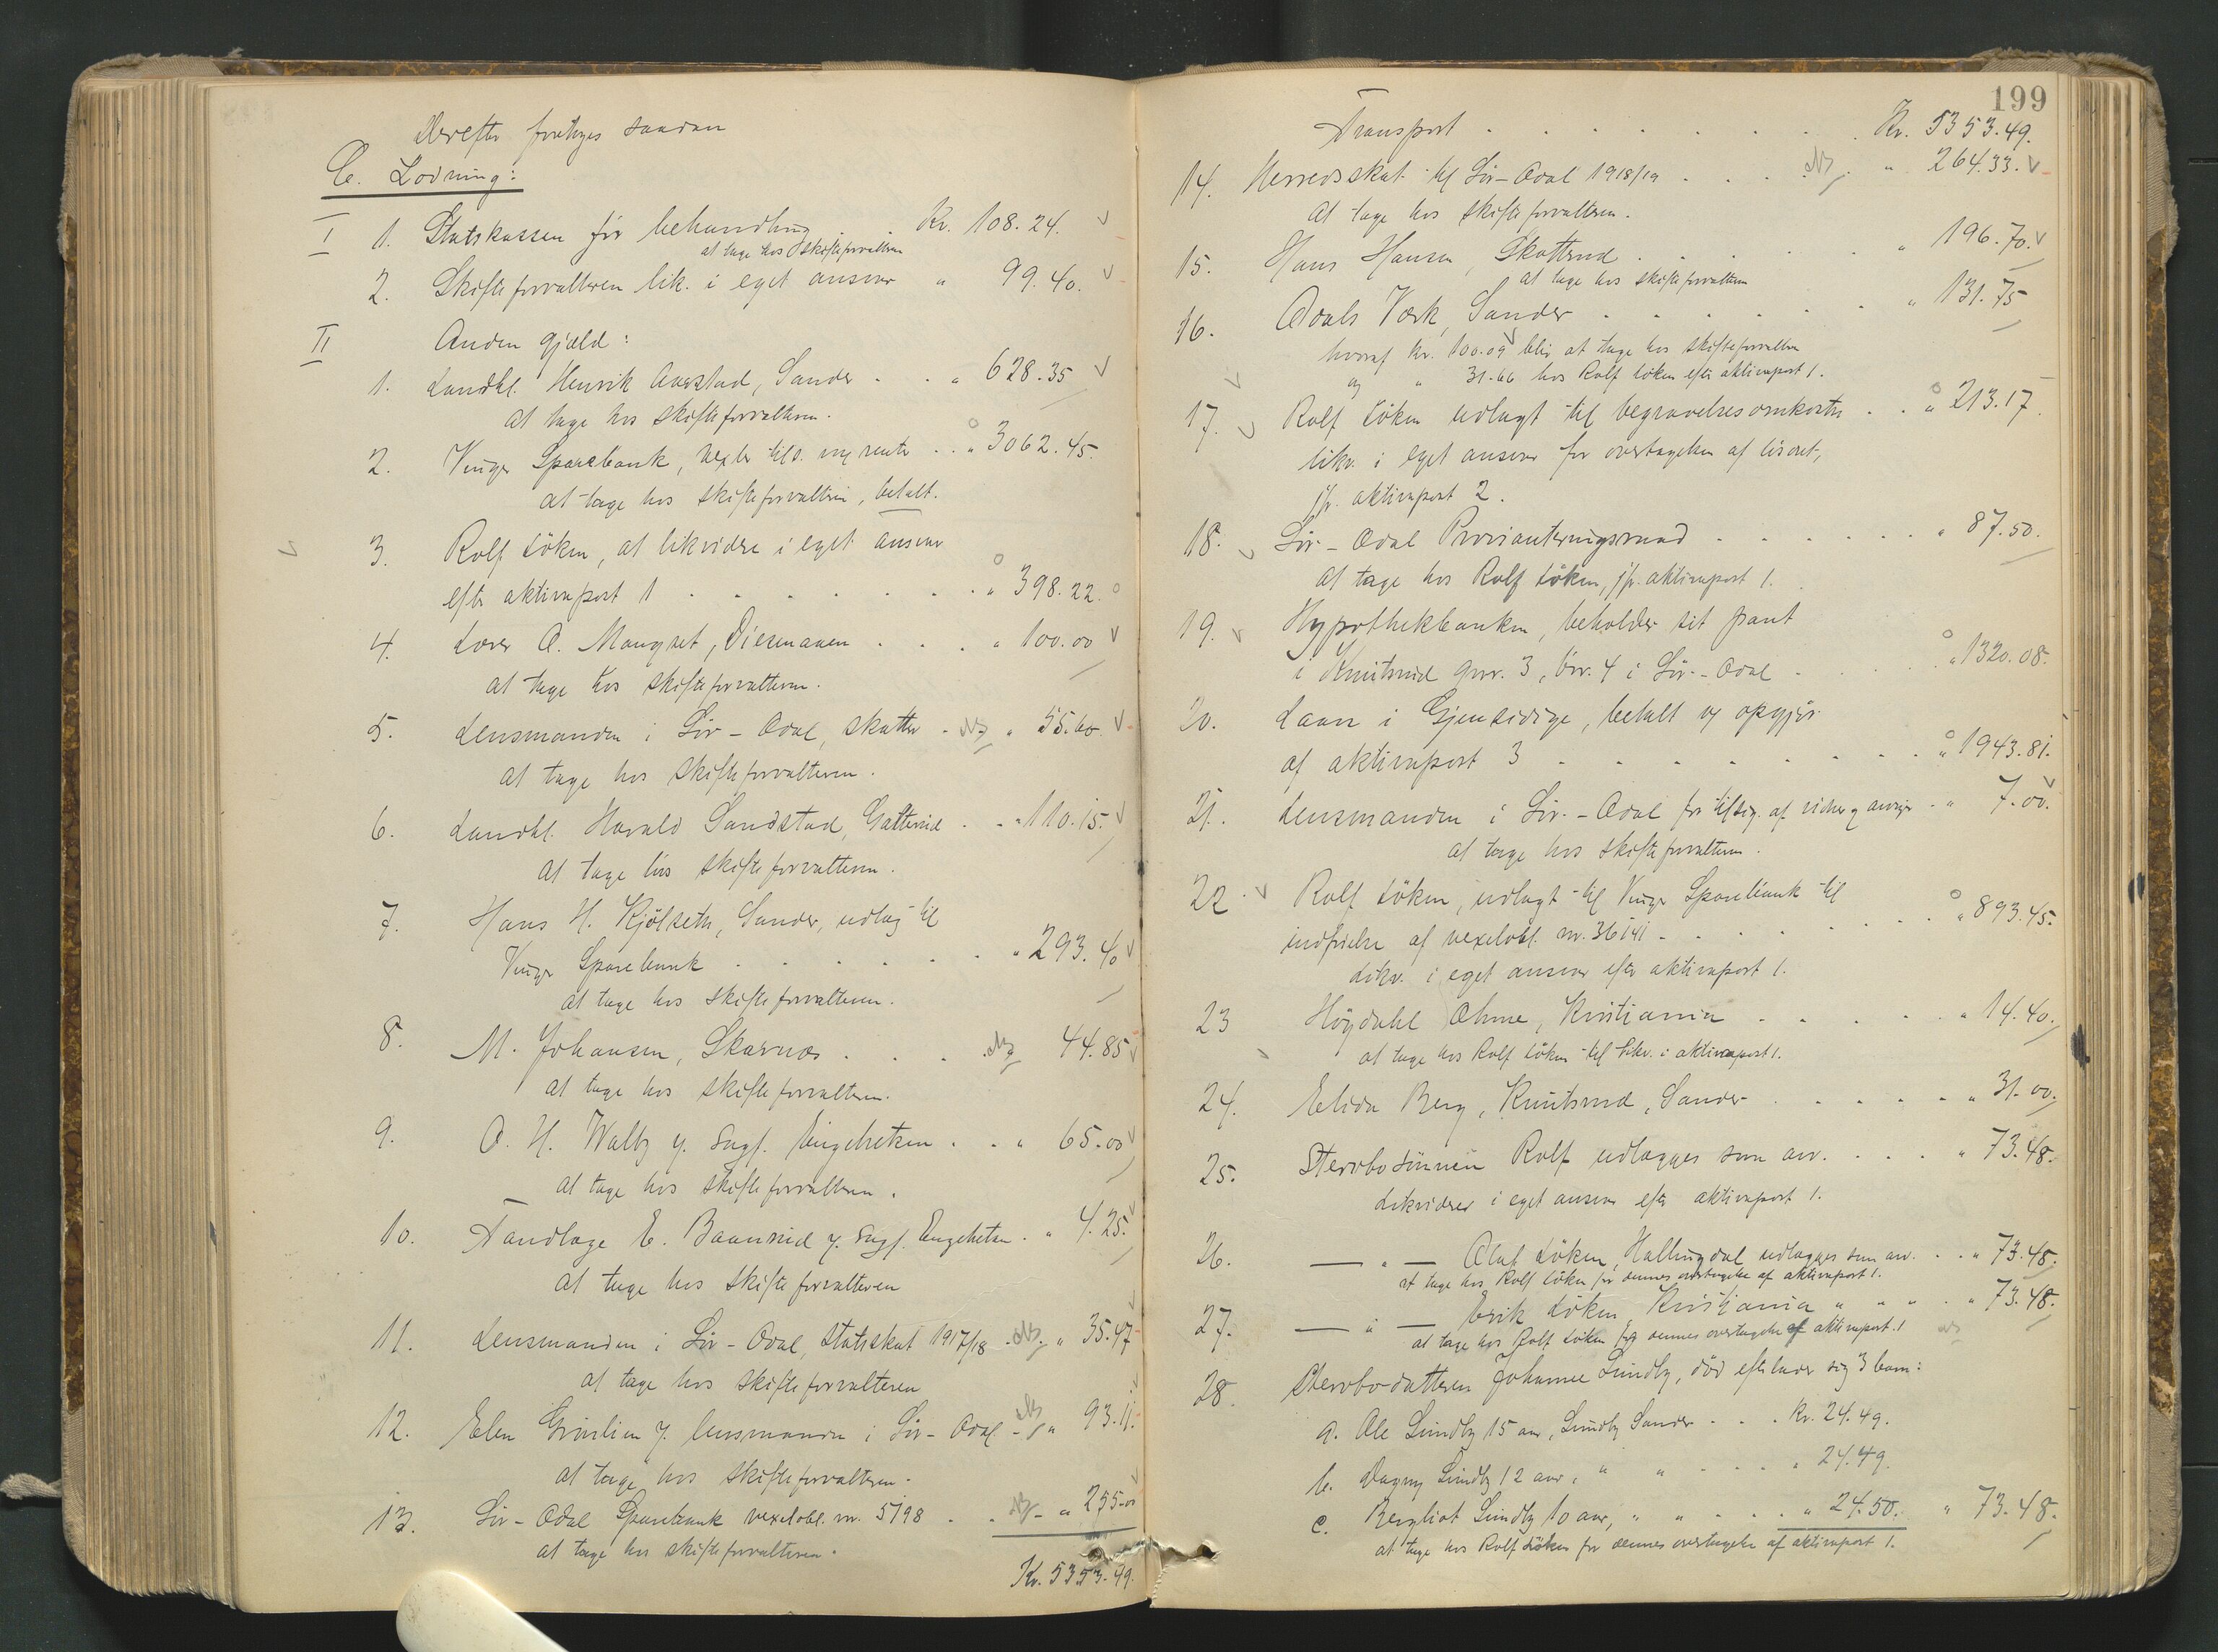 Derefter foretoges saadan
C. Lodning:
I 1. Statskassen for behandling . . Kr. 108.24.
at tage hos skifteforvalteren
2. Skifteforvalteren lik. i eget ansvar " 99.40.
II Anden gjæld:
1. Landhl. Henrik Aarstad, Sander . . . " 628.35
At tage hos skifteforvalteren.
2. Vinger Sparebank, vexler tils. m/ rente . . " 3062.45.
At tage hos skifteforvalteren, betalt.
3. Rolf Löken, at likvidere i eget ansvar
efter aktivapost 1 . . . . . . . " 398.22.
4. Lærer O. Mangset, Disenaaen . . . . " 100.00
at tage hos skifteforvalteren.
5. Lensmanden i Sör-Odal, skatter . " 55.60
at tage hos skifteforvalteren.
6. Landhl. Harald Sandstad, Galterud . . " 110.15.
At tage hos skifteforvalteren.
7. Hans H. Kjölseth, Sander, udlæg til
Vinger Sparebank . . . . . . . " 293.40
at tage hos skifteforvalteren.
8. M. Johansen, Skarnæs . . . . 44.85
at tage hos skifteforvalteren.
9. O. H. Walby y. Sagf. Engebretsen . . " 65.00
at tage hos skifteforvalteren.
10. Tandlæge E. Baanrud y. Sagf. Engebretsen . " 4.25.
at tage hos skifteforvalteren
11. Lensmanden i Sör-Odal, Statsskat 1917/18 . " 35.47
at tage hos skifteforvalteren
12. Elen y. lensmanden i Sör-Odal - " 93.11.
at tage hos skifteforvalteren.
13. Sör-Odal Sparebank vexelobl. nr. 5198 . . " 255.00
at tage hos skifteforvalteren.
Kr. 5353.49.
199
Transport . . . . . . . . . Kr. 5353.49.
14. Herredsskat til Sör-Odal 1918/19 . . . . " 264.33.
At tage hos skifteforvalteren.
15. Hans Hansen, Skotterud . . . . . " 196.70.
at tage hos skifteforvalteren
16. Odals Værk, Sander . . . . . . " 131.75
hvoraf Kr. 100.09 blir at tage hos skifteforvalteren
og " 31.66 hos Rolf Löken efter aktivapost 1.
17. Rolf Löken udlagt til begravelsesomkostn. . . " 213.17.
likv. i eget ansvar for overtagelsen af lösöret,
jfr. aktivapost 2.
18. Sör-Odal Provianteringsraad . . . . . . " 87.50.
At tage hos Rolf Löken, jfr. aktivapost 1.
19. Hypothekbanken, beholder sit pant
i Knutsrud gnr. 3, bnr. 4 i Sör-Odal . . . . " 1320.08.
20. Laan i Gjensidige, betalt og opgjör
af aktivapost 3 . . . . . . . . . " 1943.81.
21. Lensmanden i Sör-Odal for tilsig. af vidner . " 7.00.
at tage hos skifteforvalteren.
22. Rolf Löken, udlagt til Vinger Sparebank til
indfrielse af vexelobl. nr. 36141 . . . . . . " 893.45.
Likv. i eget ansvar efter aktivapost 1.
23 Höydahl Ohme, Kristiania . . . . . " 14.40.
at tage hos Rolf Löken til likv. i aktivapost 1.
24. Elida Berg, Knutsrud, Sander . . . . . " 31.00.
25. Stervbosönnen Rolf udlægges som arv. . . . " 73.48.
Likviderer i eget ansvar efter aktivapost 1.
26. — " — Olaf Löken, Hallingdal udlægges som arv. . . " 73.48.
at tage hos Rolf Löken for dennes overtagelse af aktivapost 1.
27. — " — Erik Löken Kristiania " " " . " 73.48.
at tage hos Rolf Löken for dennes overtagelse af aktivapost 1
28. Stervbodatteren Johanne Lundby, död efterlader sig 3 barn:
a. Ole Lundby 15 aar, Lundby Sander . . . Kr. 24.49.
b. Dagny Lundby 12 aar, " " . . . " 24.49.
c. Bergliot Lundby 10 aar, " " . . . " 24.50. " 73.48.
at tage hos Rolf Löken for dennes overtagelse af aktivapost 1.